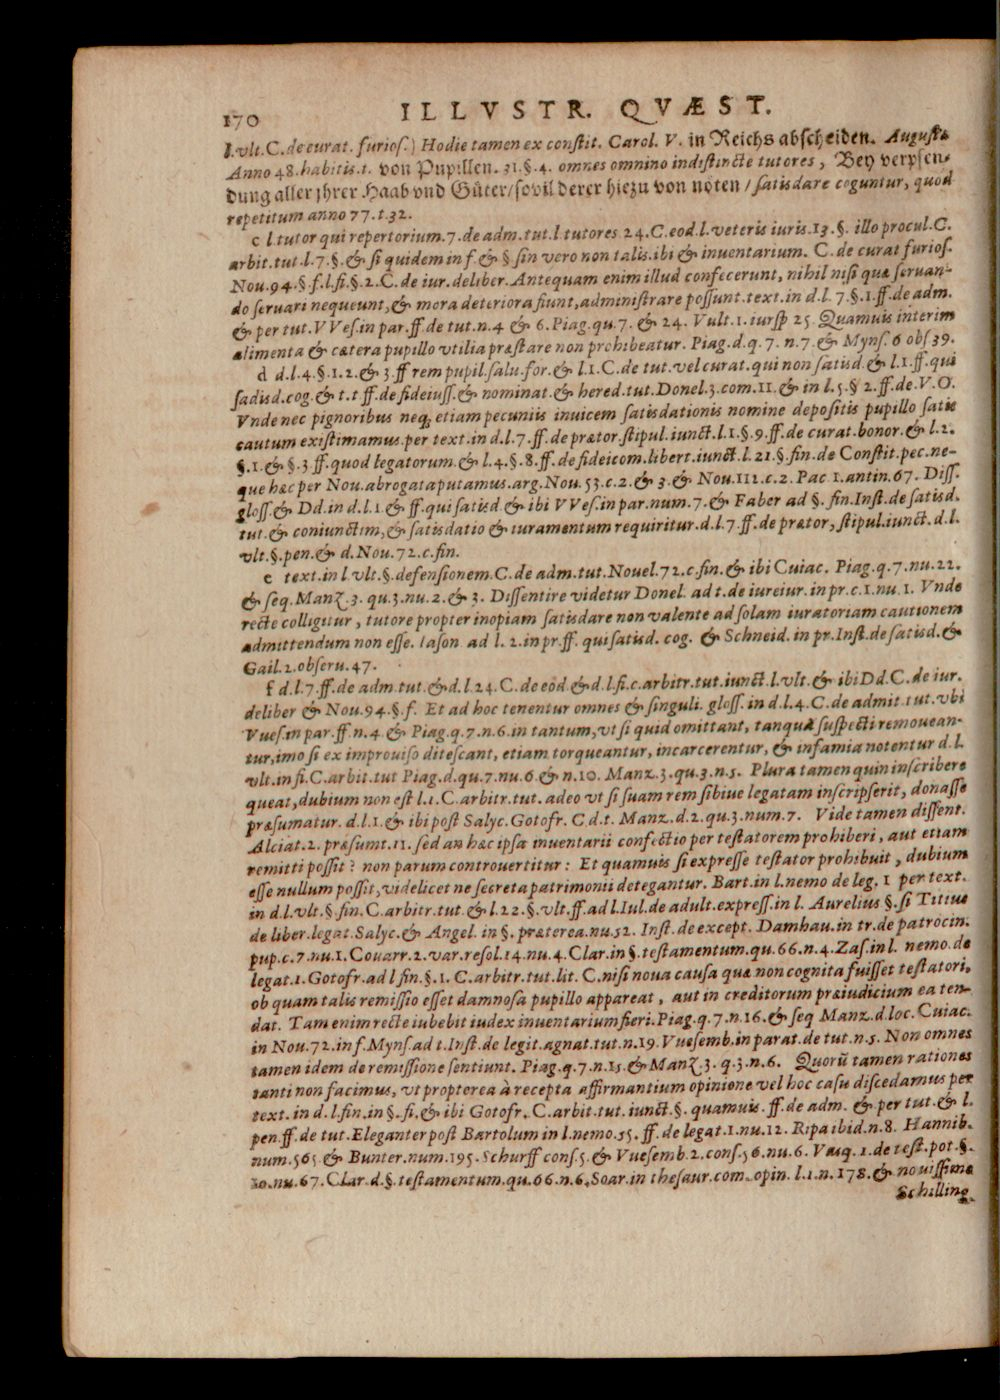 170 ILLVSTR. QVÆST.
l.vlt.C.de curat. furios.) Hodie tamen ex constit. Carol. V. in Reichs abscheiden. Augustæ
Anno 48. habitis.t. von Pupillen. 31.§.4. omnes omnino indistincte tutores, Bey verpfen-
dung aller jhrer Haab vnd Güter/sovil derer hiezu von nöten / satisdare coguntur, quod
repetitum anno 77.t.32.
c l.tutor qui repertorium.7.de adm.tut.l tutores 24.C.eod.l.veteris iuris.13.§. illo procul.C.
arbit.tut.l.7.§.& si quidem in f.& §.sin vero non talis.ibi & inuentarium. C.de curat furios.
Nou.94.§.f.l.fi.§.2.C.de iur.deliber. Antequam enim illud confecerunt, nihil nisi quæ seruan-
do seruari nequeunt,& mora deteriora fiunt,administrare possunt.text.in d.l. 7.§.1.ff.de adm.
& per tut.VVes.in par.ff.de tut.n.4 & 6.Piag.qu.7. & 24. Vult.1.iursp 25. Quamuis interim
alimenta & cætera pupillo vtilia præstare non prohibeatur. Piag.d.q.7. n.7.& Myns.6 obs 39.
d d.l.4.§.1.2.& 3.ff rem pupil.salu.for.& l.1.C.de tut.vel curat.qui non satisd.& l.1.ff.qui
sadisd.cog.& t.t ff.de fideiuss.& nominat.& hered.tut.Donel.3.com.11.& in l.5.§ 2.ff.de.V.O.
Vnde nec pignoribus neq; etiam pecuniis inuicem satisdationis nomine depositis pupillo satis
cautum existimamus.per text.in d.l.7.ff.de prætor.stipul.iunct.l.1.§.9.ff.de curat.bonor.& l.2.
§.1.& §.3.ff.quod legatorum.& l.4.§.8.ff.de fideicom.libert.iunct.l.21.§.fin.de Constit.pec.ne-
que hæc per Nou.abrogata putamus.arg.Nou.53.c.2.& 3.& Nou.111.c.2. Pac 1.antin.67. Diss.
gloss.& Dd.in d.l.1.& ff.qui satisd.& ibi VVes.in par.num.7.& Faber ad §. fin.Inst.de satisd.
tut.& coniunctim,& satisdatio & iuramentum requiritur.d.l.7.ff.de prætor, stipul.iunct.d.l.
vlt.§.pen.& d.Nou.72.c.fin.
e text.in l.vlt.§.defensionem.C.de adm.tut.Nouel.72.c.fin.& ibi Cuiac. Piag.q.7.nu.22.
& seq.Manz.3. qu.3.nu.2.& 3. Dissentire videtur Donel. ad t.de iureiur.in pr.c.1.nu.1. Vnde
recte colligitur, tutore propter inopiam satisdare non valente ad solam iuratoriam cautionem
admittendum non esse. Iason ad l. 2.in pr.ff. qui satisd. cog. & Schneid. in pr.Inst.de satisd.&
Gail.2.obseru.47.
f d.l.7.ff.de adm.tut.& d.l.24.C.de eod.& d.l.fi.c.arbitr.tut.iunct.l.vlt.& ibi Dd.C.de iur.
deliber & Nou.94.§.f. Et ad hoc tenentur omnes & singuli. gloss.in d.l.4.C.de admit.tut.vbi
Vues.in par.ff.n.4.& Piag.q.7.n.6.in tantum,vt si quid omittant, tanquã suspecti remouean-
tur,imo si ex improuiso ditescant, etiam torqueantur, incarcerentur, & infamia notentur d.l.
vlt.in fi.C.arbit.tut Piag.d.qu.7.nu.6.& n.10. Manz.3.qu.3.n.5. Plura tamen quin inscribere
queat,dubium non est l.1.C.arbitr.tut. adeo vt si suam rem sibiue legatam inscripserit, donasse
præsumatur. d.l.1.& ibi post Salyc.Gotofr. C.d.t. Manz.d.2.qu.3.num.7. Vide tamen dissent.
Alciat.2. præsumt.11. sed an hæc ipsa inuentarii confectio per testatorem prohiberi, aut etiam
remitti possit? non parum controuertitur: Et quamuis si expresse testator prohibuit, dubium
esse nullum possit,videlicet ne secreta patrimonii detegantur. Bart.in l.nemo de leg. 1 per text.
in d.l.vlt.§.fin.C.arbitr.tut.& l.22.§.vlt.ff.ad l.Iul.de adult.express.in l. Aurelius §.si Titius
de liber.legat.Salyc.& Angel.in §. præterea.nu.52. Inst.de except. Damhau.in tr.de patrocin.
pup.c.7.nu.1.Couarr.2.var.resol.14.nu.4.Clar.in §.testamentum.qu.66.n.4.Zas.in l. nemo.de
legat.1.Gotofr.ad l fin.§.1.C.arbitr.tut.lit. C.nisi noua causa quæ non cognita fuisset testatori,
ob quam talis remissio esset damnosa pupillo appareat, aut in creditorum præiudicium ea ten-
dat. Tam enim recte iubebit iudex inuentarium fieri.Piag.q.7.n.16.& seq Manz.d.loc.Cuiac.
in Nou.72.in f.Myns.ad t.Inst.de legit.agnat.tut.n.19.Vuesemb.in parat.de tut.n.5. Non omnes
tamen idem de remissione sentiunt. Piag.q.7.n.15.& Manz.3. q.3.n.6. Quorũ tamen rationes
tanti non facimus, vt propterea à recepta affirmantium opinione vel hoc casu discedamus per
text. in d.l.fin.in §.fi.& ibi Gotofr. C.arbit.tut.iunct.§. quamuis.ff.de adm. & per tut.& l.
pen.ff.de tut.Eleganter post Bartolum in l.nemo.55. ff.de legat.1.nu.12. Ripa ibid.n.8. Hannib.
num.565.& Bunter.num.195.Schurff cons.5.& Vuesemb.2.cons.56.nu.6. Vasq. 1.de test.pot.§.
10.nu.67.Clar.d.§.testamentum.qu.66.n.6.Soar.in thesaur.com.opin. l.1.n.178.& nouissime
Schilling.